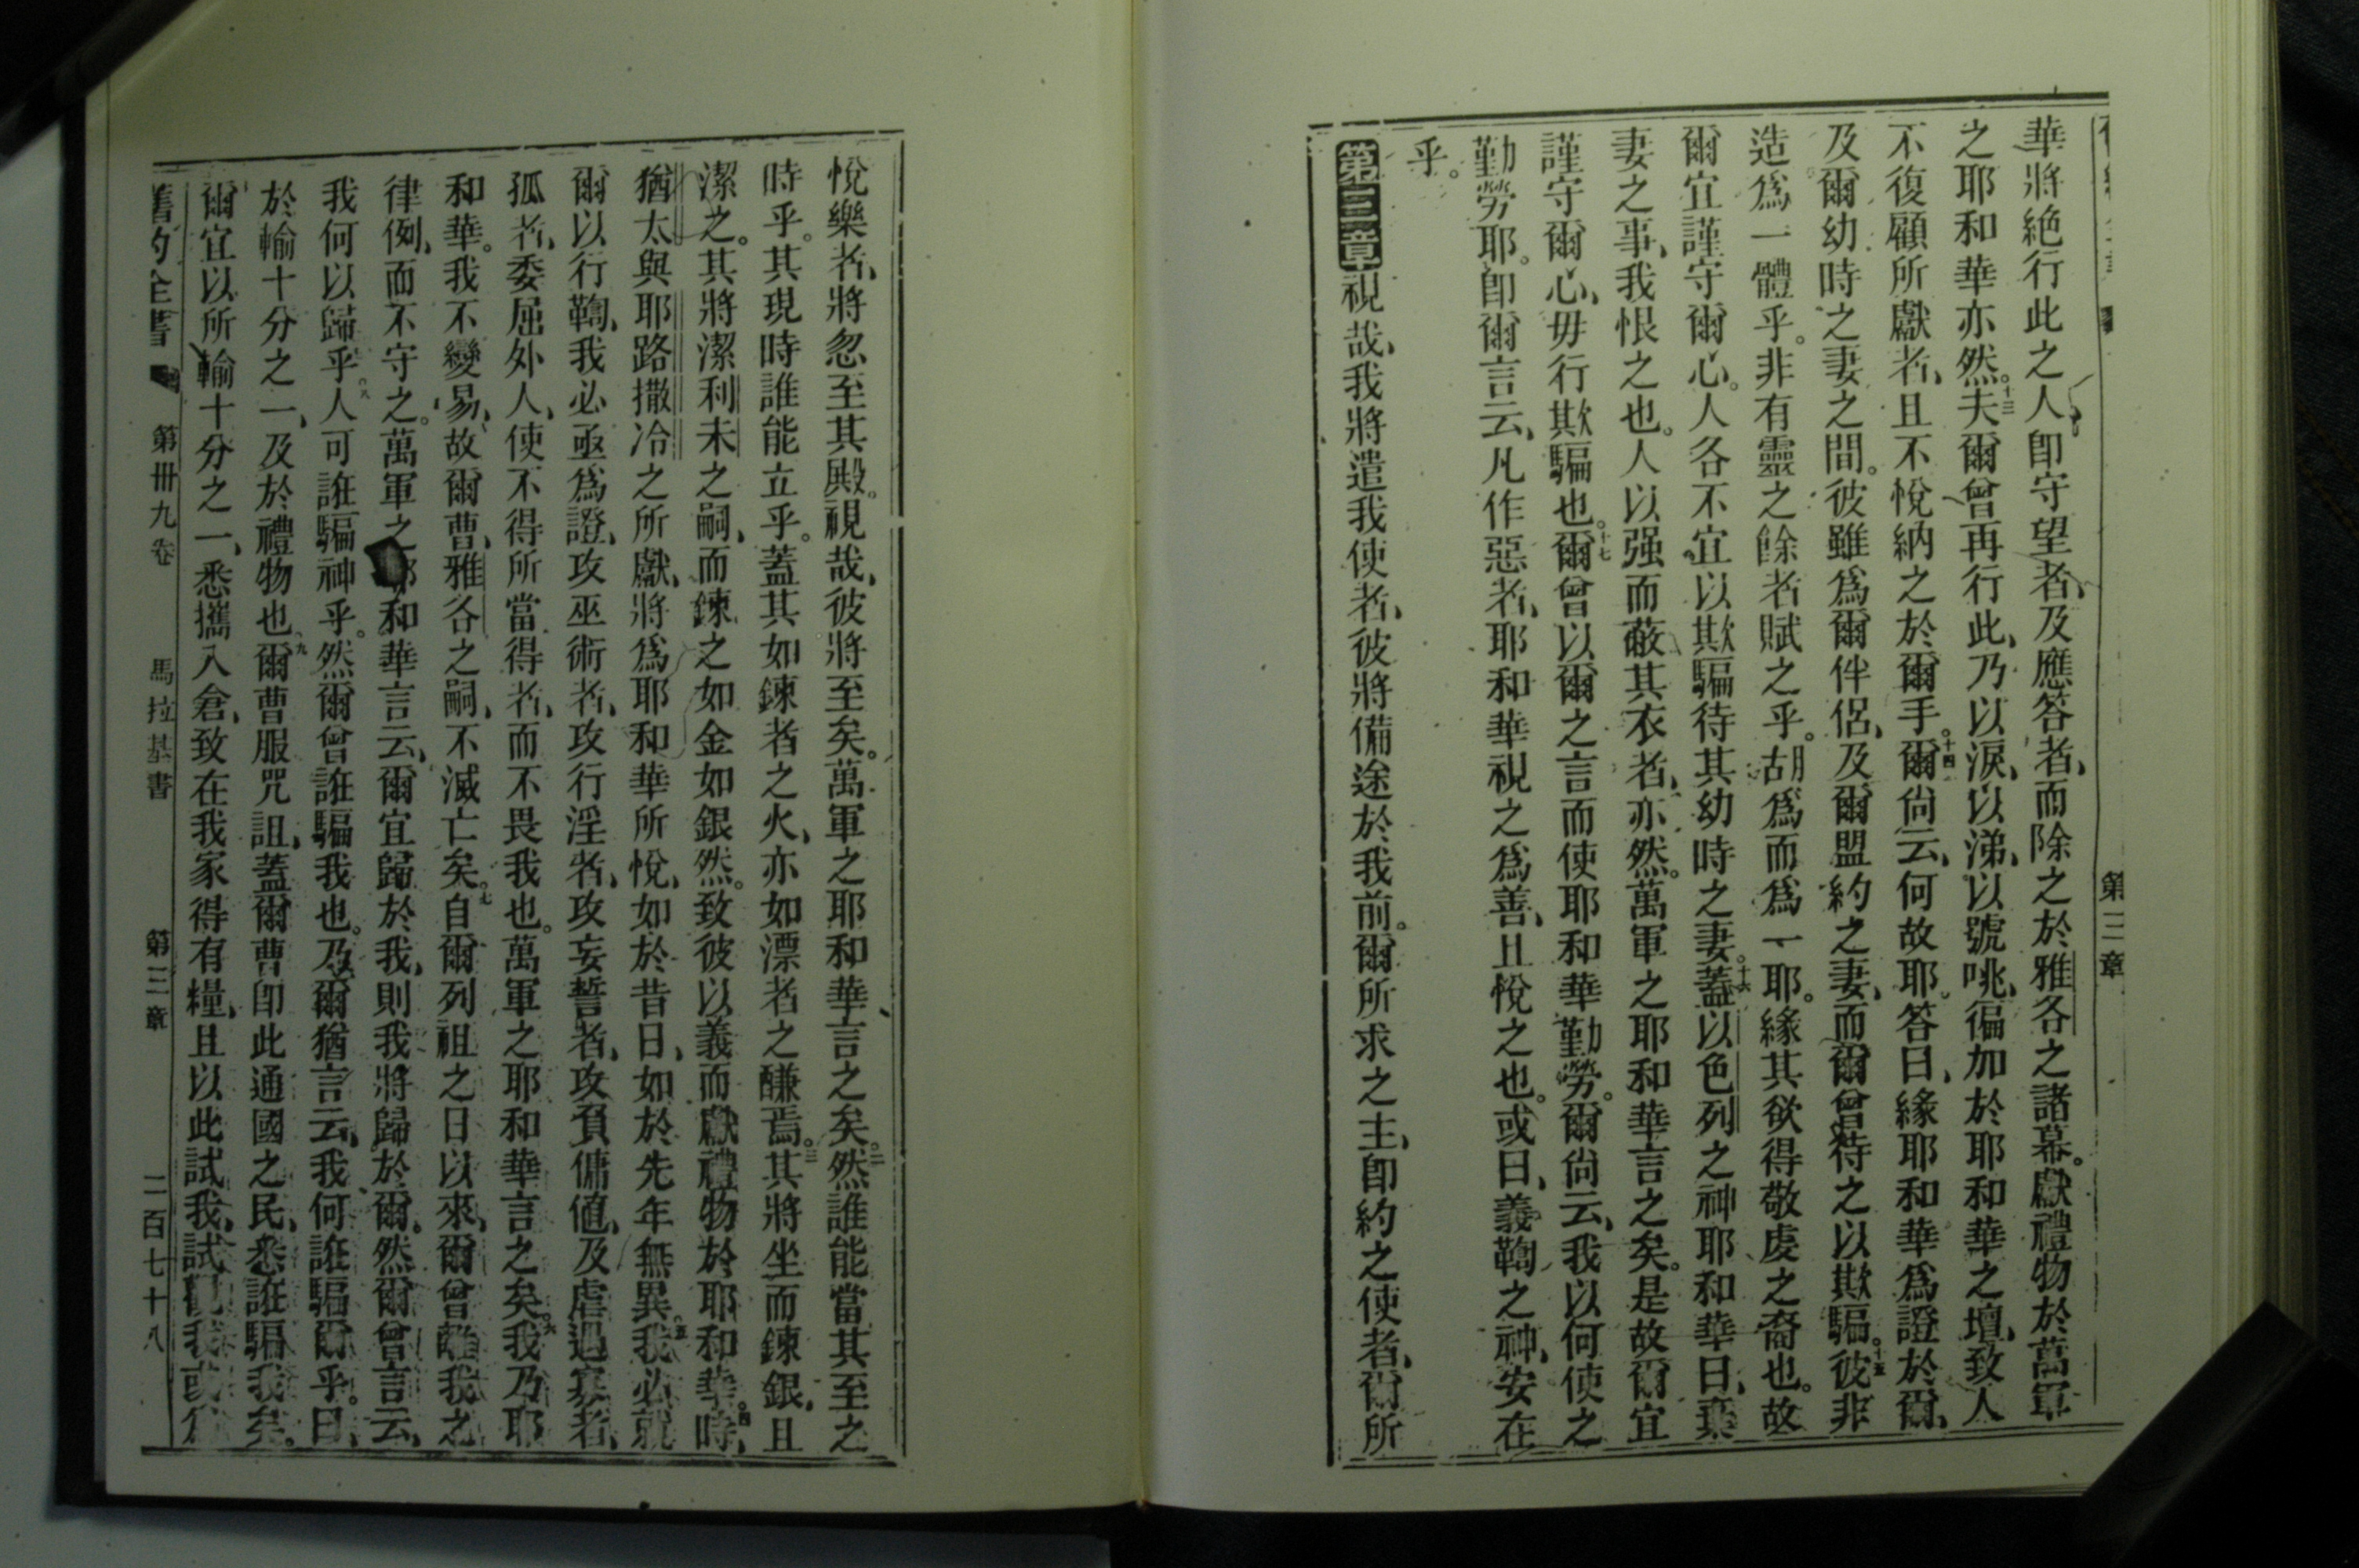 第三章
華將絕行此之人、即守望者、及應答者、而除之於雅各之諸幕。獻禮物於萬軍
之耶和華亦然。十三夫爾曾再行此、乃以淚、以涕、以號咷、徧加於耶和華之壇、致人
不復顧所獻者、且不悅納之於爾手。十四爾尙云、何故耶。答曰、緣耶和華爲證於爾、
及爾幼時之妻之間。彼雖爲爾伴侶、及爾盟約之妻、而爾曾待之以欺騙。十五彼非
造爲一體乎。非有靈之餘者賦之乎。胡爲而爲一耶。緣其欲得敬虔之裔也。故
爾宜謹守爾心。人各不宜以欺騙待其幼時之妻。十六蓋以色列之神耶和華曰、棄
妻之事、我恨之也。人以强而蔽其衣者、亦然。萬軍之耶和華言之矣。是故爾宜
謹守爾心、毋行欺騙也。十七爾曾以爾之言而使耶和華勤勞。爾尙云、我以何使之
勤勞耶。即爾言云、凡作惡者、耶和華視之爲善、且悅之也。或曰、義鞫之神、安在
乎。
第三章視哉、我將遣我使者、彼將備途於我前。爾所求之主、即約之使者、爾所
悅樂者、將忽至其殿。視哉、彼將至矣。萬軍之耶和華言之矣。二然誰能當其至之
時乎。其現時誰能立乎。蓋其如鍊者之火、亦如漂者之鹻焉。三其將坐而鍊銀、且
潔之。其將潔利未之嗣、而鍊之如金如銀然。致彼以義而獻禮物於耶和華。四時、
猶太與耶路撒冷之所獻、將爲耶和華所悅、如於昔日、如於先年無異。五我必就
爾以行鞫、我必亟爲證、攻巫術者、攻行淫者、攻妄誓者、攻負傭値、及虐遇寡者、
孤者、委屈外人、使不得所當得者、而不畏我也。萬軍之耶和華言之矣。六我乃耶
和華。我不變易、故爾曹、雅各之嗣、不滅亡矣。七自爾列祖之日以來、爾曾離我之
律例、而不守之。萬軍之耶和華言云、爾宜歸於我、則我將歸於爾。然爾曾言云、
我何以歸乎。八人可誑騙神乎。然爾曾誑騙我也。乃爾猶言云、我何誑騙爾乎。曰、
於輸十分之一、及於禮物也。九爾曹服咒詛、蓋爾曹即此通國之民、悉誑騙我矣。
爾宜以所輸十分之一、悉攜入倉、致在我家得有糧、且以此試我、試觀我或
舊約全書 第卅九卷 馬拉基書 第三章 二百七十八